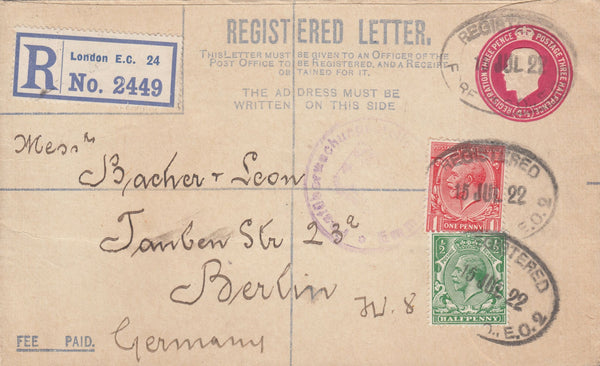 REGISTERED LETTER.
THIS LETTER MUST BE GIVEN TO AN OFFICER OF THE
POST OFFICE TO BE REGISTERED, AND A RECEIPT
OBTAINED FOR IT.
THE ADDRESS MUST BE
WRITTEN ON THIS SIDE
R
London E.C. 24
No. 2449
REGISTRATION THREE PENCE
POSTAGE THREE HALFPENCE
JUL 22
Messrs
Bacher + Leon
Tauben Str 23a
Berlin
W. 8
Germany
FEE PAID.
REGISTERED
15 JUL 22
E.O.2
ONE PENNY
REGISTERED
15 JUL 22
E.O.2
½
½
HALFPENNY